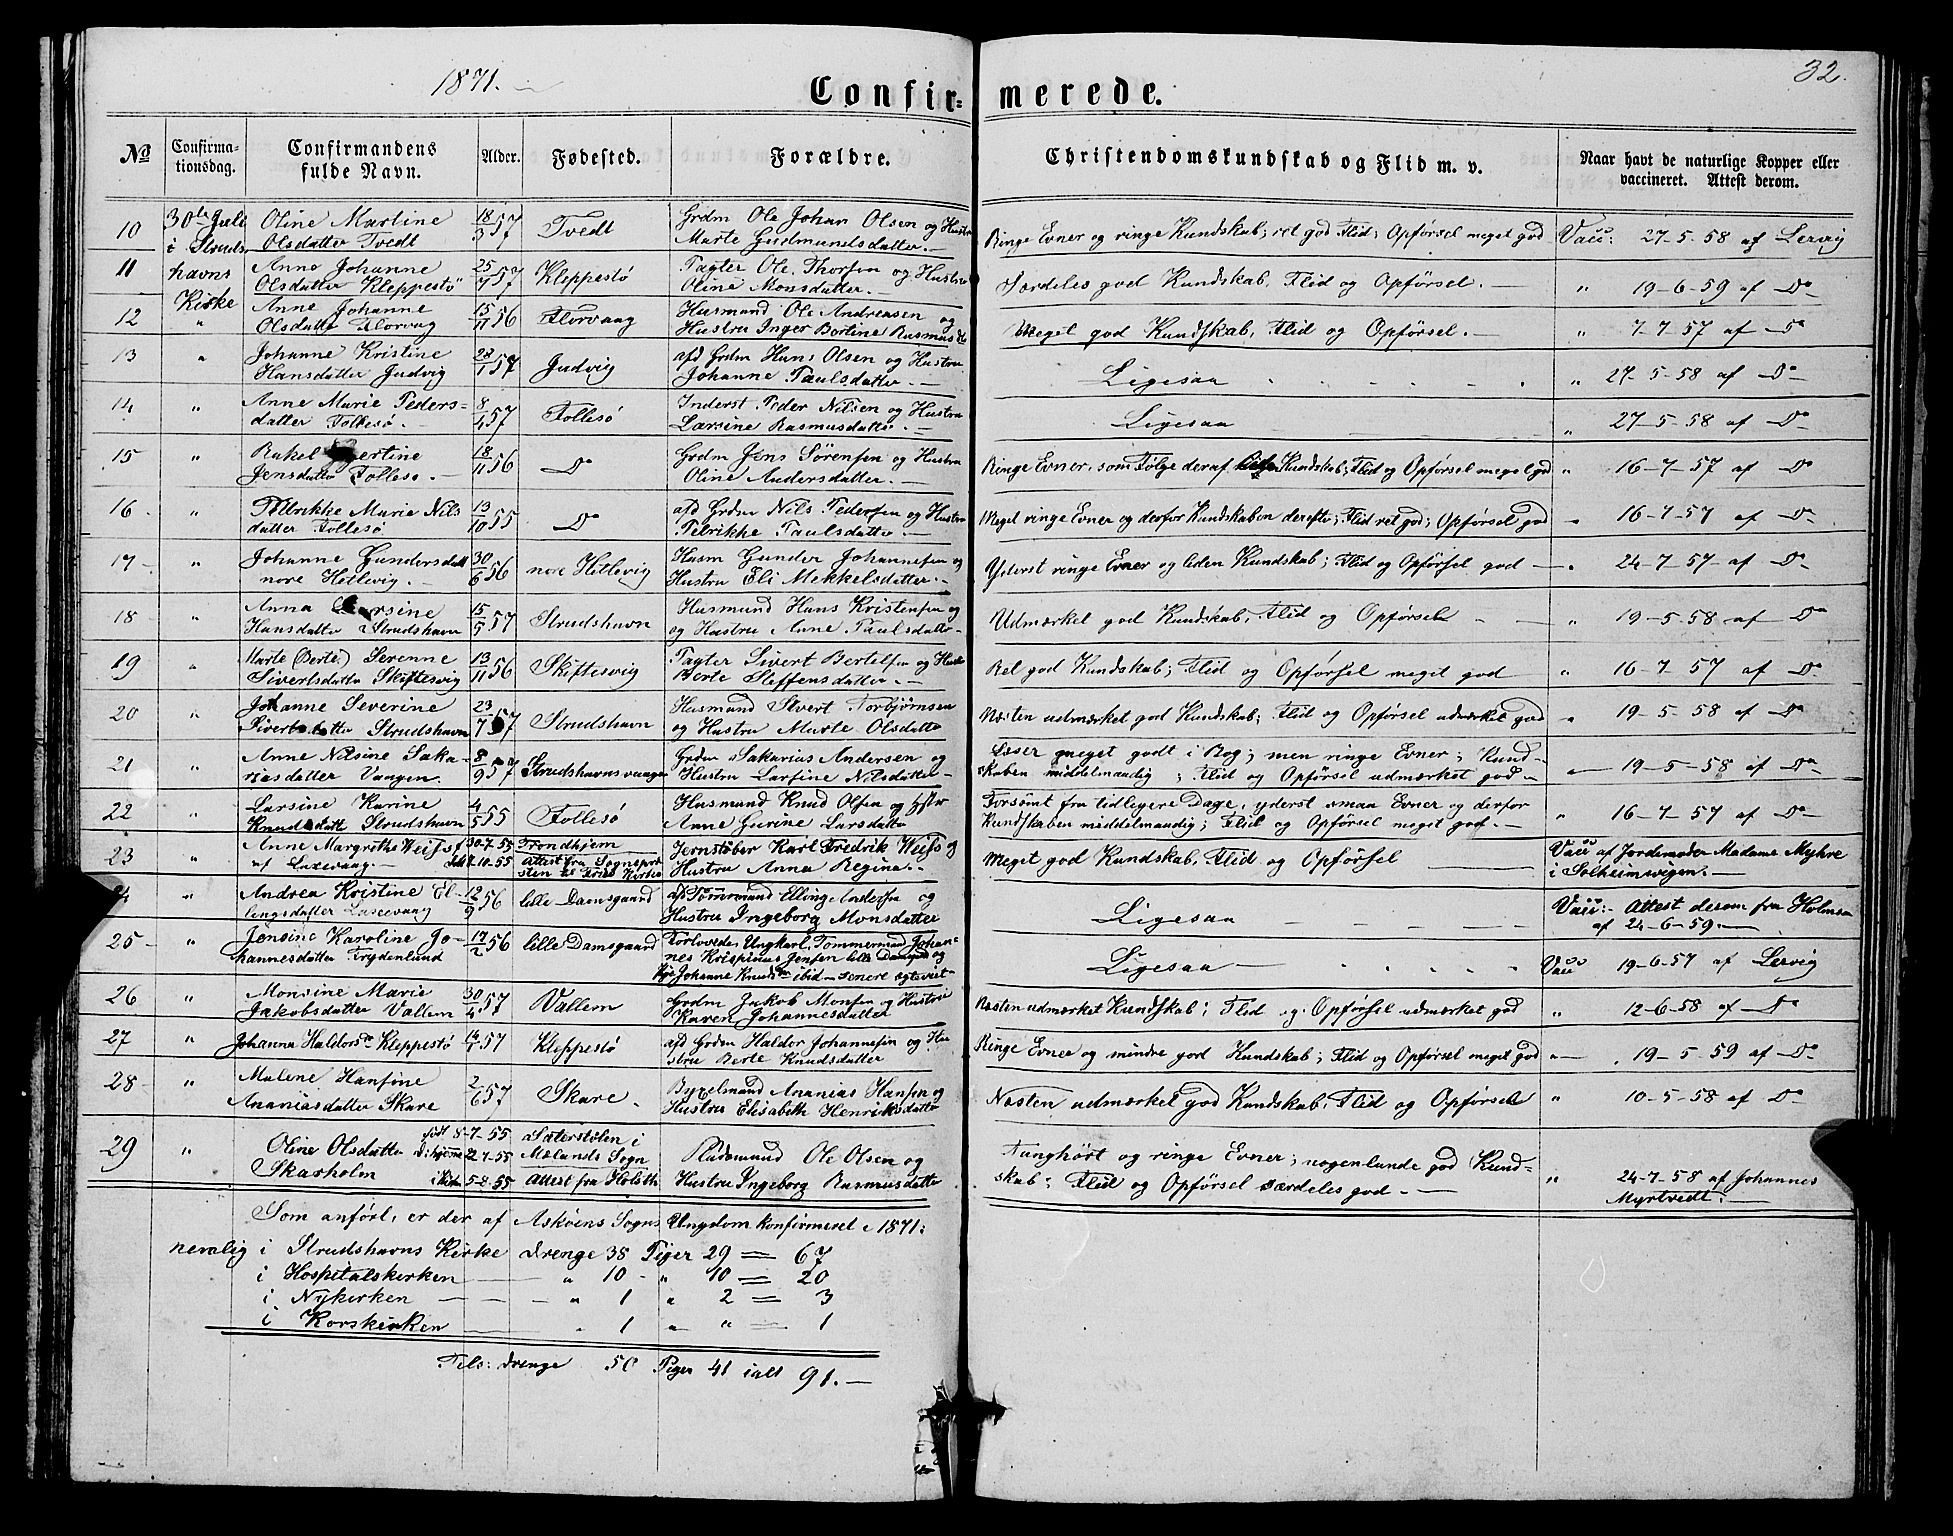 1871.
32.
Confir=
merede.
No
Confirma=
tionsdag.
Confirmandens
fulde Navn.
Alder.
Fødested.
Forældre.
Christendomskundskab og Flid m. v.
Naar havt de naturlige Kopper eller
vaccineret. Attest derom.
10 30te Juli Oline Martine 18/3 57 Tvedt Grdm Ole Johan Olsen og Hustru
i Struds Olsdatter Tvedt Marte Gudmundsdatter.—
Ringe Evner og ringe Kundskab; ret god Flid; Opførsel meget god Vacc: 27-5-58 af Lervig
11 havns Anne Johanne 25/ 57 Kleppestø Ole Thorsen og Hustru
Olsdatter Kleppestö Oline Monsdatter.
Særdeles god Kundskab, Flid og Opførsel.— " 19-6-59 af Do
12 Kirke Anne Johanne 15/11 56 Florvaag Husmand Ole Andreasen og
" Olsdatter Florvag Hustru Inger Bertine Rasmusd
Meget god Kundskab, Flid og Opførsel.— " 7-7-57 af Do
13 " Johanne Kristine 28/1 57 Judvig afd Grdm Hans Olsen og Hustru
Hansdatter Judvig Johanne Paulsdatter.—
Ligesaa " 27-5-58 af Do
14 " Anne Marie Peders- 8/4 57 Follesø Inderst Peder Nilsen og Hustru
datter Follesø.— Larsine Rasmusdatter.—
Ligesaa " 27-5-58 af Do
15 " Rakel Bertine 18/11 56 Do Grdm Jens Sörensen og Hustru
Jensdatter Follesø.— Oline Andersdatter.—
Ringe Evner, som Følge deraf liden Kundskab; Flid og Opførsel meget god " 16-7-57 af Do
16 " Petrikke Marie Nils 13/10 55 Do afd Grdm Nils Pedersen og Hustru
datter Follesø Petrikke Paulsdatter.—
Meget ringe Evner og derfor Kundskaben derefter; Flid ret god; Opførsel god " 16-7-57 af Do
17 " Johanne Gundersdatt 30/6 56 nore Hetlevig Husm Gunder Johannesen og
nore Hetlevig.— Hustru Eli Mekkelsdatter.—
Yderst ringe Evner og liden Kundskab; Flid og Opførsel god — " 24-7-57 af Do
18 " Anna Larsine 15/5 57 Strudshavn Husmand Hans Kristensen og
Hansdatter Strudshavn og Hustru Anne Paulsdatter
Udmærket god Kundskab, Flid og Opførsel " 19-5-58 af Do
19 " Marte (Berte) Serenne 13/11 56 Skiftesvig Sivert Bertelsen og Hustru
Sivertsdatter Skiftesvig Berte Steffensdatter.—
Ret god Kundskab; Flid og Opførsel meget god " 16-7-57 af Do
20 " Johanne Severine 23/7 57 Strudshavn Husmand Sivert Torbjørnsen
Sivertsdatter Strudshavn og Hustru Marte Olsdatter
Næsten udmærket god Kundskab; Flid og Opførsel udmærket god " 19-5-58 af Do
21 " Anne Nilsine Saka- 8/9 57 Strudshavnsvaagen Grdm Sakarias Andersen og
riasdatter Vaagen. Hustru Larsine Nilsdatter
Læser meget godt i Bog; men ringe Evner; Kund-
skaben middelmaadig; Flid og Opførsel udmærket god — " 19-5-58 af Do
22 " Larsine Karine 4/5 55 Follesø Husmand Knud Olsen og Hustr
Knudsdatt Strudshavn Anne Gurine Larsdatter
Forsömt fra tidligere Dage, yderst smaa Evner og derfor
Kundskaben middelmaadig; Flid og Opførsel meget god.— " 16-7-57 af Do
23 " Anne Margrethe Weisse f 30-7-55 Trondhjem Jernstøber Karl Fredrik Weiss og
af Laxevaag.— 7-10-55 Attest fra Sognepræ
sten Hustru Anna Regina.—
Meget god Kundskab, Flid og Opførsel Vacc af Jordemoder Madame Myhre
i Solheimsvigen.—
24 " Andrea Kristine El- 12/9 56 lille Damsgaard afd Tømmermand Elling Andersen og
lingsdatter Laxevaag Hustru Ingeborg Monsdatter
Ligesaa Vacc:- Attest derom fra Holmsen
af 24-6-59.—
25 " Jensine Karoline Jo- 17/2 56 lille Damsgaard Forlovede, Ungkarl, Tømmermand Johan-
hannesdatter Frydenlund nes Krispinus Jensen lille Damsgrd og
Pige Johanne Knudsdtr ibid — senere egteviet
Ligesaa Vacc 19-6-57 af Lervig
26 " Monsine Marie 30/4 57 Vallem Grdm Jakob Monsen og Hustru
Jakobsdatter Vallem Karen Johannesdatter
Næsten udmærket Kundskab; Flid og Opførsel udmærket god " 12-6-58 af Do
27 " Johanna Haldorsdr Kleppestø 57 Kleppestø afd Grdm Haldor Johannesen og Hu-
stru Berte Knudsdatter
Ringe Evner og mindre god Kundskab; Flid og Opførsel meget god " 19-5-59 af Do
28 " Malene Hansine 2/6 57 Skare Ananias Hansen og
Ananiasdatter Skare Hustru Elisabeth Henriksdatter
Næsten udmærket god Kundskab, Flid og Opførsel " 10-5-58 af Do
29 " Oline Olsdatter født 8-7-55 Sæterstølen i
Skarholm 22-7-55 Mælands Sogn Pladsmand Ole Olsen og
5-8-55 Attest fra Holsth Hustru Ingeborg Rasmusdatter
Tunghørt og ringe Evner; nogenlunde god Kund-
skab; Flid og Opførsel særdeles god.— " 24-7-58 af Johannes
Myrtvedt.
Som anført, er der af Askøens Sogns Ungdom konfirmeret i 1871:
nemlig i Strudshavns Kirke Drenge 38 Piger 29 = 67
i Hospitalskirken — " 10 - " 10 = 20
i Nykirken — " 1 " 2 = 3
i Korskirken — " 1 " " = 1
Tils: Drenge 50 Piger 41 ialt 91.—